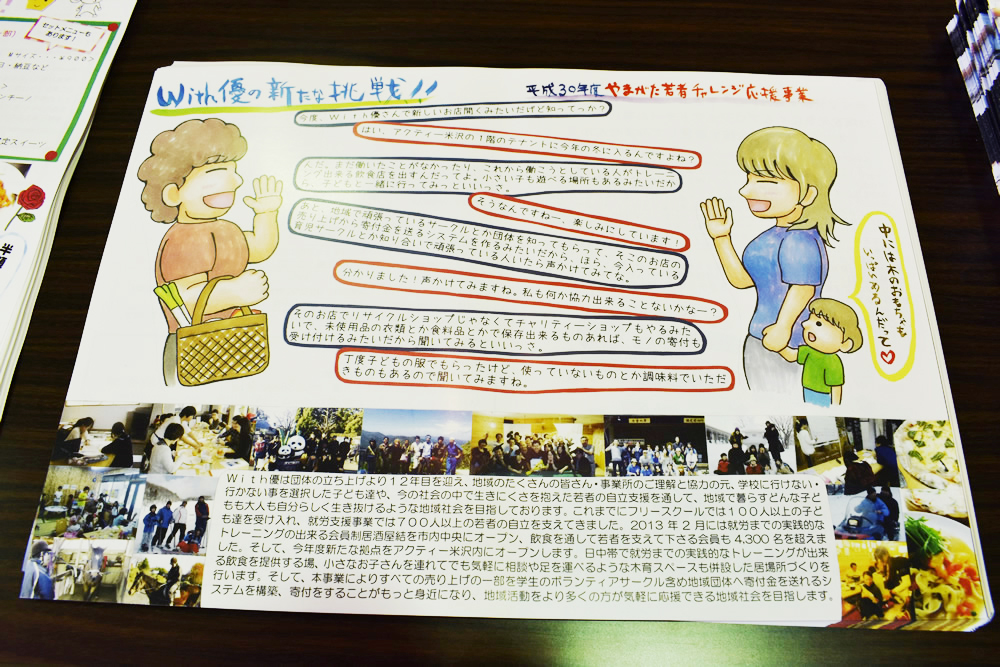 セットメニューも
あります!
日・納豆など
With優の新たな挑戦!!
平成30年度 やまがた若者チャレンジ応援事業
今度、With優さんで新しいお店開くみたいだけど知ってっか?
はい、アクティー米沢の1階のテナントに今年の冬に入るんですよね?
んだ、まだ働いたことがなかったり、これから働こうとしている人がトレーニ
ング出来る飲食店を出すんだってよ。小さい子も遊べる場所もあるみたいだか
、子どもと一緒に行ってみっといいっさ。
そうなんですねー、楽しみにしています!
あと、地域で頑張っているサークルとか団体を知ってもらって、そこのお店の
売り上げから寄付金を送るシステムを作るみたいだから、ほら、今入っている
育児サークルとか知り合いで頑張っている人いたら声かけてみてな。
分かりました!声かけてみますね。私も何か協力出来ることないかなー?
そのお店でリサイクルショップじゃなくてチャリティーショップもやるみた
いで、未使用品の衣類とか食料品とかで保存出来るものあれば、モノの寄付も
受け付けるみたいだから聞いてみるといいっさ。
丁度子どもの服でもらったけど、使っていないものとか調味料でいただ
きものもあるので聞いてみますね。
中には木のおもちゃも
いっぱいあるんだって♡
With優は団体の立ち上げより12年目を迎え、地域のたくさんの皆さん・事業所のご理解と協力の元、学校に行けない・
行かない事を選択した子ども達や、今の社会の中で生きにくさを抱えた若者の自立支援を通して、地域で暮らすどんな子ど
もも大人も自分らしく生き抜けるような地域社会を目指しております。これまでにフリースクールでは100人以上の子ど
も達を受け入れ、就労支援事業では700人以上の若者の自立を支えてきました。2013年2月には就労までの実践的な
トレーニングの出来る会員制居酒屋結を市内中央にオープン、飲食を通して若者を支えて下さる会員も4,300名を超えま
した。そして、今年度新たな拠点をアクティー米沢内にオープンします。日中帯で就労までの実践的なトレーニングが出来
る飲食を提供する場、小さなお子さんを連れてでも気軽に相談や足を運べるような木育スペースも併設した居場所づくりを
行います。そして、本事業によりすべての売り上げの一部を学生のボランティアサークル含め地域団体へ寄付金を送れるシ
ステムを構築、寄付をすることがもっと身近になり、地域活動をより多くの方が気軽に応援できる地域社会を目指します。